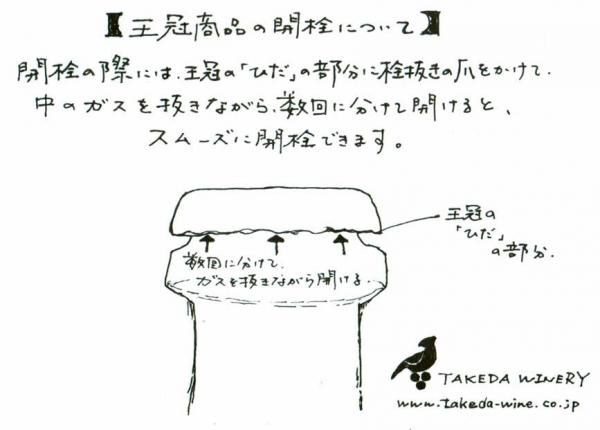 【王冠商品の開栓について】
開栓の際には、王冠の「ひだ」の部分に栓抜きの爪をかけて、
中のガスを抜きながら、数回に分けて開けると、
スムーズに開栓できます。
王冠の
「ひだ」
の部分.
数回に分けて、
ガスを抜きながら開ける
TAKEDA WINERY
www.takeda-wine.co.jp